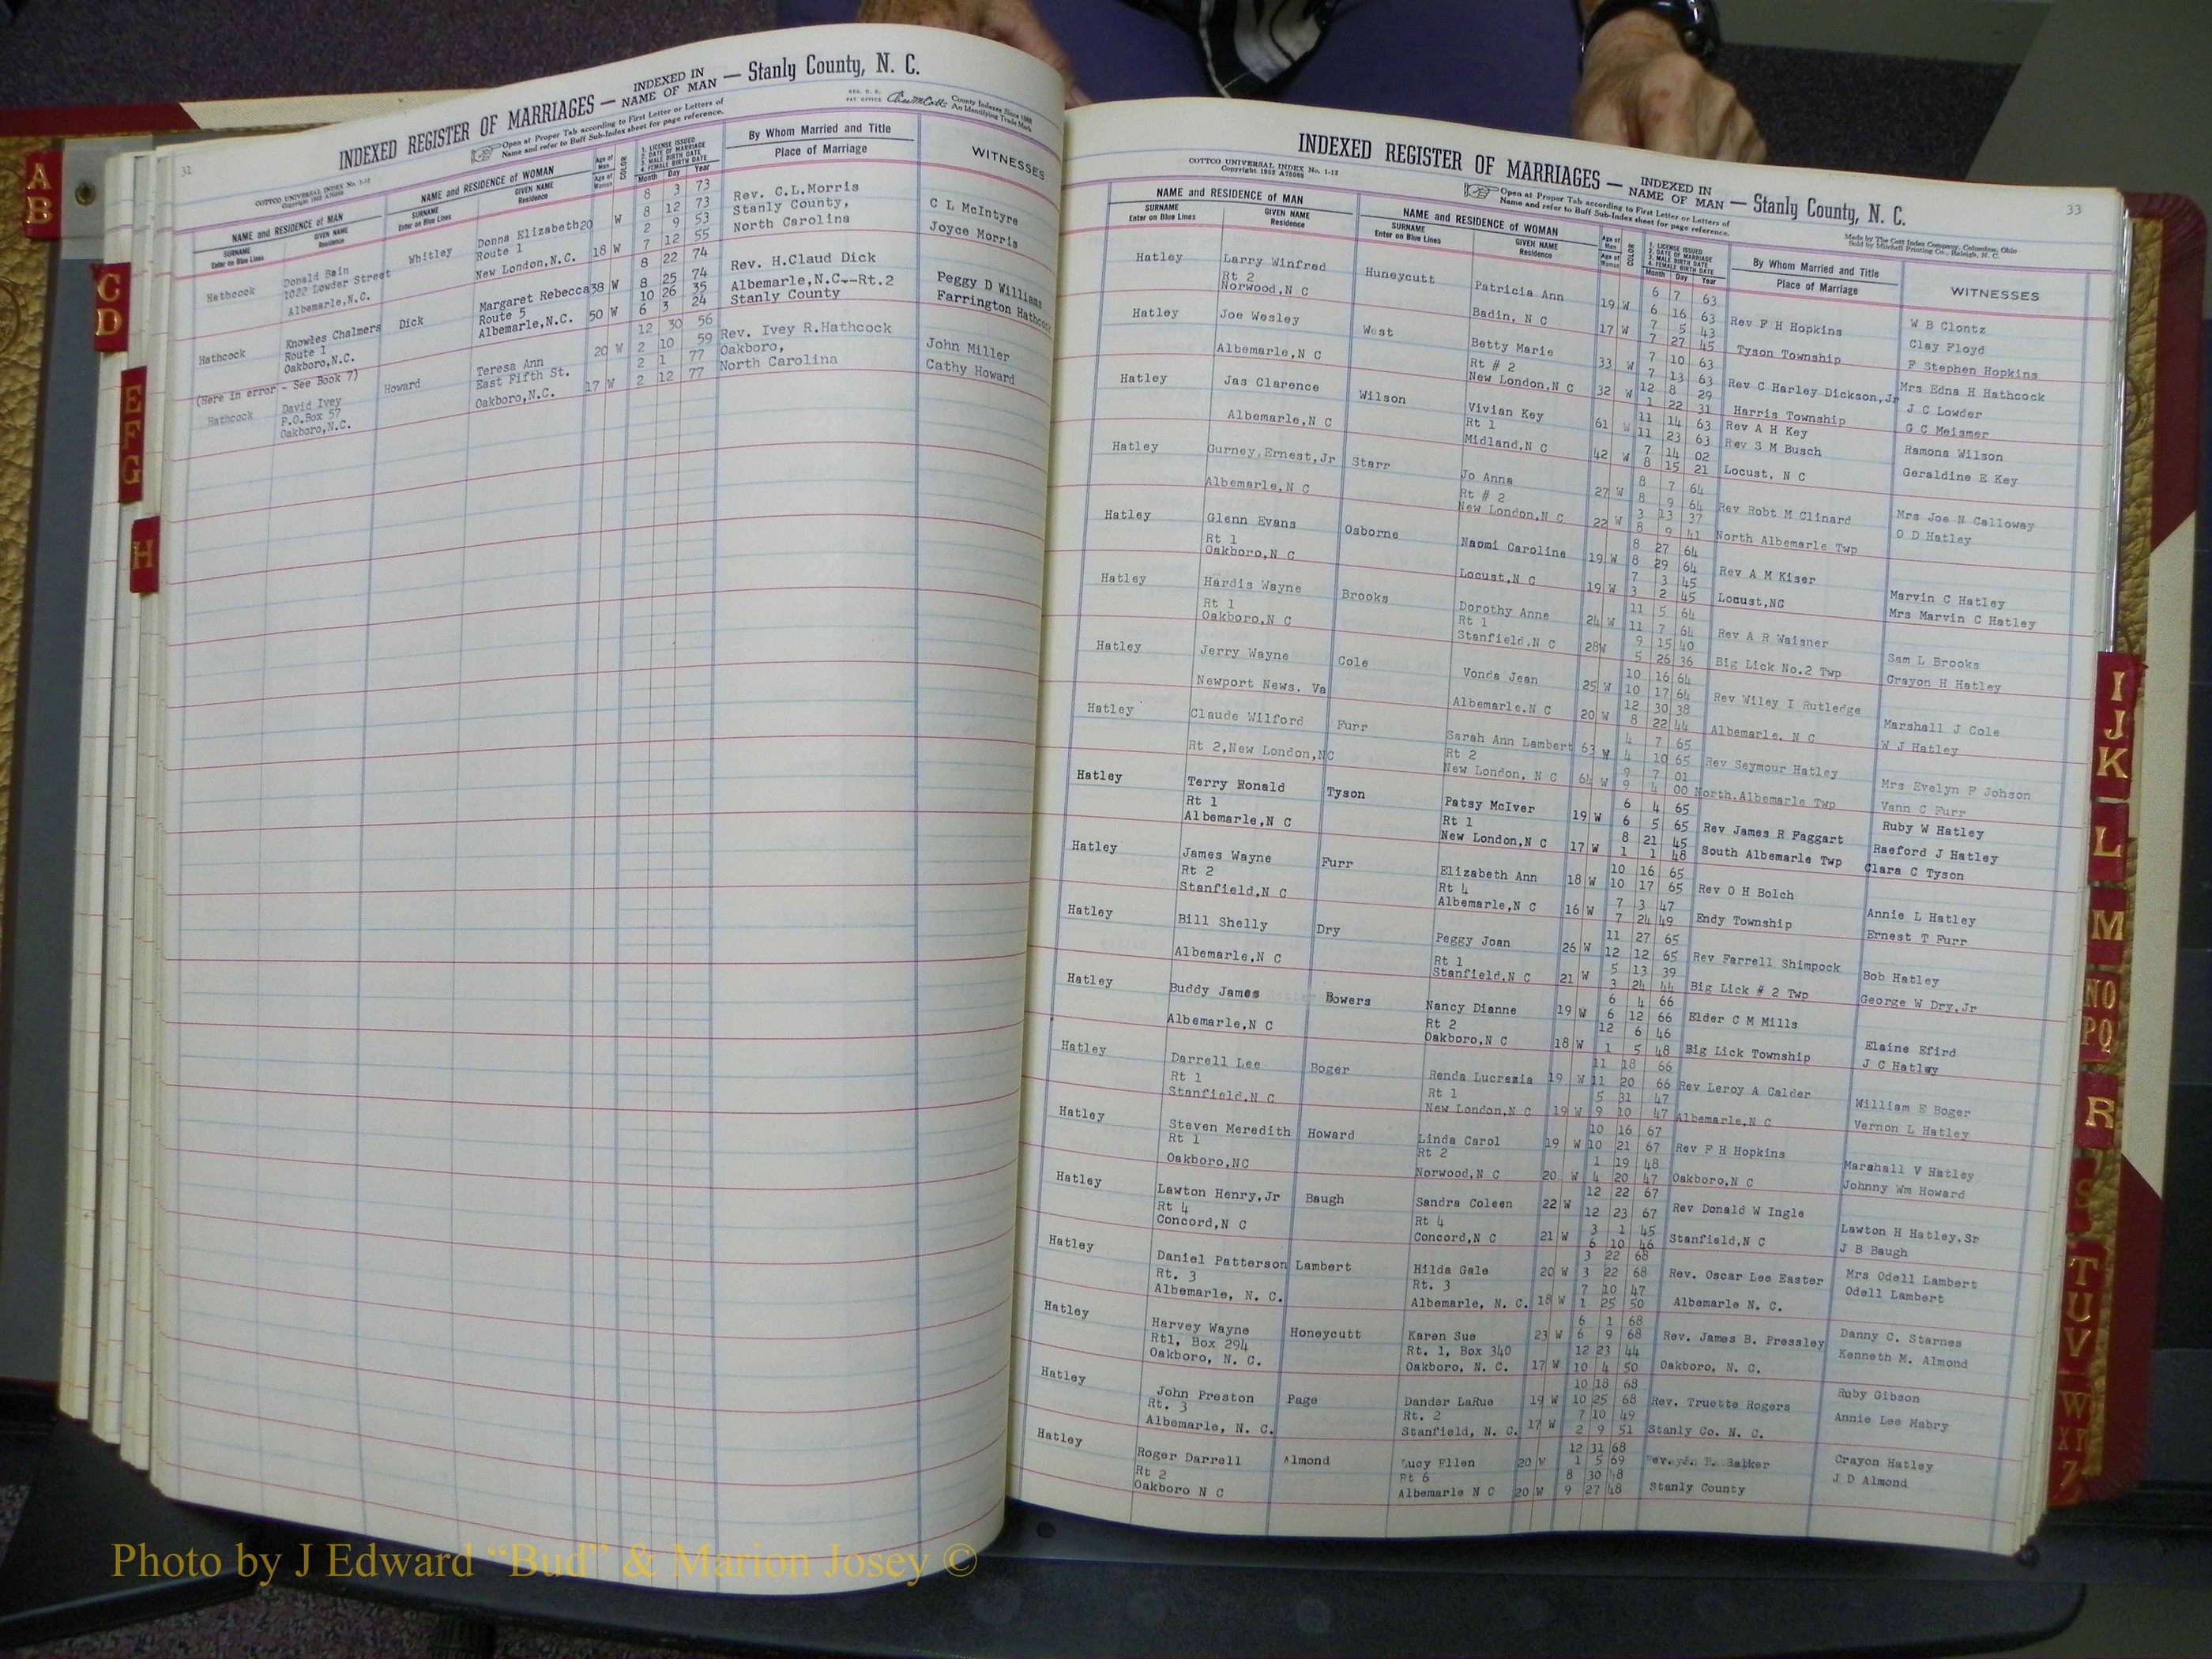 31
INDEXED REGISTER OF MARRIAGES — INDEXED IN NAME OF MAN — Stanly County, N. C.
COTTCO UNIVERSAL INDEX No. 1-12
Open at Proper Tab according to First Letter or Letters of
Name and refer to Buff Sub-Index sheet for page reference.
County Indexes Since 1888
An Identifying Trade Mark
NAME and RESIDENCE of MAN
SURNAME
Enter on Blue Lines
GIVEN NAME
Residence
NAME and RESIDENCE OF WOMAN
SURNAME
Enter on Blue Lines
GIVEN NAME
Residence
Age of Man
Age of Woman
COLOR
1. LICENSE ISSUED
2. DATE OF MARRIAGE
3. MALE BIRTH DATE
4. FEMALE BIRTH DATE
Month Day Year
By Whom Married and Title
Place of Marriage
WITNESSES
Hathcock Donald Bain Whitley Donna Elizabeth 20 W 8 3 73 Rev. C.L.Morris C L McIntyre
1022 Lowder Street Route 1 8 12 73 Stanly County, Joyce Morris
Albemarle,N.C. New London,N.C. 18 W 2 9 53 North Carolina
7 12 55
Hathcock Knowles Chalmers Dick Margaret Rebecca 38 W 8 22 74 Rev. H.Claud Dick Peggy D Williams
Route 1 Route 5 8 25 74 Albemarle,N.C--Rt.2 Farrington Hathcock
Oakboro,N.C. Albemarle,N.C. 50 W 10 26 35 Stanly County
6 3 24
(Here in error - See Book 7)
Hathcock David Ivey Howard Teresa Ann 20 W 12 30 56 Rev. Ivey R.Hathcock John Miller
P.O.Box 57 East Fifth St. 2 10 59 Oakboro, Cathy Howard
Oakboro,N.C. Oakboro,N.C. 17 W 2 1 77 North Carolina
2 12 77
INDEXED REGISTER OF MARRIAGES — INDEXED IN NAME OF MAN — Stanly County, N. C.
33
COTTCO UNIVERSAL INDEX No. 1-12
Open at Proper Tab according to First Letter or Letters of
Name and refer to Buff Sub-Index sheet for page reference.
Made by The Cott Index Company, Columbus, Ohio
Sold by Mitchell Printing Co., Raleigh, N. C.
NAME and RESIDENCE OF MAN
SURNAME
Enter on Blue Lines
GIVEN NAME
Residence
NAME and RESIDENCE OF WOMAN
SURNAME
Enter on Blue Lines
GIVEN NAME
Residence
Age of Man
Age of Woman
COLOR
1. LICENSE ISSUED
2. DATE OF MARRIAGE
3. MALE BIRTH DATE
4. FEMALE BIRTH DATE
Month Day Year
By Whom Married and Title
Place of Marriage
WITNESSES
Hatley Larry Winfred Huneycutt Patricia Ann 19 W 6 7 63 Rev F H Hopkins W B Clontz
Rt 2 6 16 63 Clay Floyd
Norwood,N C Badin, N C 17 W 7 5 43 Tyson Township F Stephen Hopkins
7 27 45
Hatley Joe Wesley West Betty Marie 33 W 7 10 63 Rev C Harley Dickson,Jr Mrs Edna H Hathcock
Rt # 2 7 13 63 J C Lowder
Albemarle,N C New London,N C 32 W 12 8 29 Harris Township G C Meismer
1 22 31
Hatley Jas Clarence Wilson Vivian Key 61 W 11 14 63 Rev A H Key Ramona Wilson
Rt 1 11 23 63 Rev S M Busch
Albemarle,N C Midland,N C 42 W 7 14 02 Locust, N C Geraldine E Key
8 15 21
Hatley Gurney,Ernest,Jr Starr Jo Anna 27 W 8 7 64 Rev Robt M Clinard Mrs Joe N Calloway
Rt # 2 8 9 64 O D Hatley
Albemarle,N C New London,N C 22 W 3 13 37 North Albemarle Twp
8 9 41
Hatley Glenn Evans Osborne Naomi Caroline 19 W 8 27 64 Rev A M Kiser Marvin C Hatley
Rt 1 8 29 64 Mrs Marvin C Hatley
Oakboro,N C Locust,N C 19 W 7 3 45 Locust,NC
3 2 45
Hatley Hardis Wayne Brooks Dorothy Anne 24 W 11 5 64 Rev A R Waisner Sam L Brooks
Rt 1 Rt 1 11 7 64
Oakboro,N C Stanfield,N C 28W 9 15 40 Big Lick No.2 Twp Grayon H Hatley
5 26 36
Hatley Jerry Wayne Cole Vonda Jean 25 W 10 16 64 Rev Wiley I Rutledge Marshall J Cole
10 17 64
Newport News. Va Albemarle.N C 20 W 12 30 38 Albemarle, N C W J Hatley
8 22 44
Hatley Claude Wilford Furr Sarah Ann Lambert 63 W 4 7 65 Rev Seymour Hatley Mrs Evelyn F Johson
Rt 2 4 10 65
Rt 2,New London,NC New London, N C 64 W 9 7 01 North.Albemarle Twp Vann C Furr
9 4 00
Hatley Terry Ronald Tyson Patsy McIver 19 W 6 4 65 Rev James R Faggart Ruby W Hatley
Rt 1 Rt 1 6 5 65 Raeford J Hatley
Albemarle,N C New London,N C 17 W 8 21 45 South Albemarle Twp Clara C Tyson
1 1 48
Hatley James Wayne Furr Elizabeth Ann 18 W 10 16 65 Rev O H Bolch Annie L Hatley
Rt 2 Rt 4 10 17 65
Stanfield,N C Albemarle,N C 16 W 7 3 47 Endy Township Ernest T Furr
7 24 49
Hatley Bill Shelly Dry Peggy Joan 26 W 11 27 65 Rev Farrell Shimpock Bob Hatley
Rt 1 12 12 65
Albemarle,N C Stanfield,N C 21 W 5 13 39 Big Lick # 2 Twp George W Dry,Jr
3 24 44
Hatley Buddy James Bowers Nancy Dianne 19 W 6 4 66 Elder C M Mills Elaine Efird
Rt 2 6 12 66
Albemarle,N C Oakboro,N C 18 W 12 6 46 Big Lick Township J C Hatley
1 5 48
Hatley Darrell Lee Boger Renda Lucrezia 19 W 11 18 66 Rev Leroy A Calder William E Boger
Rt 1 Rt 1 11 20 66
Stanfield,N C New London,N C 19 W 5 31 47 Albemarle,N C Vernon L Hatley
9 10 47
Hatley Steven Meredith Howard Linda Carol 19 W 10 16 67 Rev F H Hopkins Marshall V Hatley
Rt 1 Rt 2 10 21 67
Oakboro,NC Norwood,N C 20 W 1 19 48 Oakboro,N C Johnny Wm Howard
4 20 47
Hatley Lawton Henry,Jr Baugh Sandra Coleen 22 W 12 22 67 Rev Donald W Ingle Lawton H Hatley,Sr
Rt 4 Rt 4 12 23 67
Concord,N C Concord,N C 21 W 3 1 45 Stanfield,N C J B Baugh
6 10 46
Hatley Daniel Patterson Lambert Hilda Gale 20 W 3 22 68 Rev. Oscar Lee Easter Mrs Odell Lambert
Rt. 3 Rt. 3 3 22 68 Odell Lambert
Albemarle, N. C. Albemarle, N. C. 18 W 7 10 47 Albemarle N. C.
1 25 50
Hatley Harvey Wayne Honeycutt Karen Sue 23 W 6 1 68 Rev. James B. Pressley Danny C. Starnes
Rt1, Box 294 Rt. 1, Box 340 6 9 68 Kenneth M. Almond
Oakboro, N. C. Oakboro, N. C. 17 W 12 23 44 Oakboro, N. C.
10 4 50
Hatley John Preston Page Dander LaRue 19 W 10 18 68 Rev. Truette Rogers Ruby Gibson
Rt. 3 Rt. 2 10 25 68 Annie Lee Mabry
Albemarle, N. C. Stanfield, N. C. 17 W 7 10 49 Stanly Co. N. C.
2 9 51
Hatley Roger Darrell Almond Lucy Ellen 20 W 12 31 68 Crayon Hatley
Rt 2 Rt 6 1 5 69 J D Almond
Oakboro N C Albemarle N C 20 W 8 30 48 Stanly County
9 27 48
A B
C D
E F G
H
I J K
L
M
NO PQ
R
S
T U V
W XY Z
Photo by J Edward “Bud” & Marion Josey ©